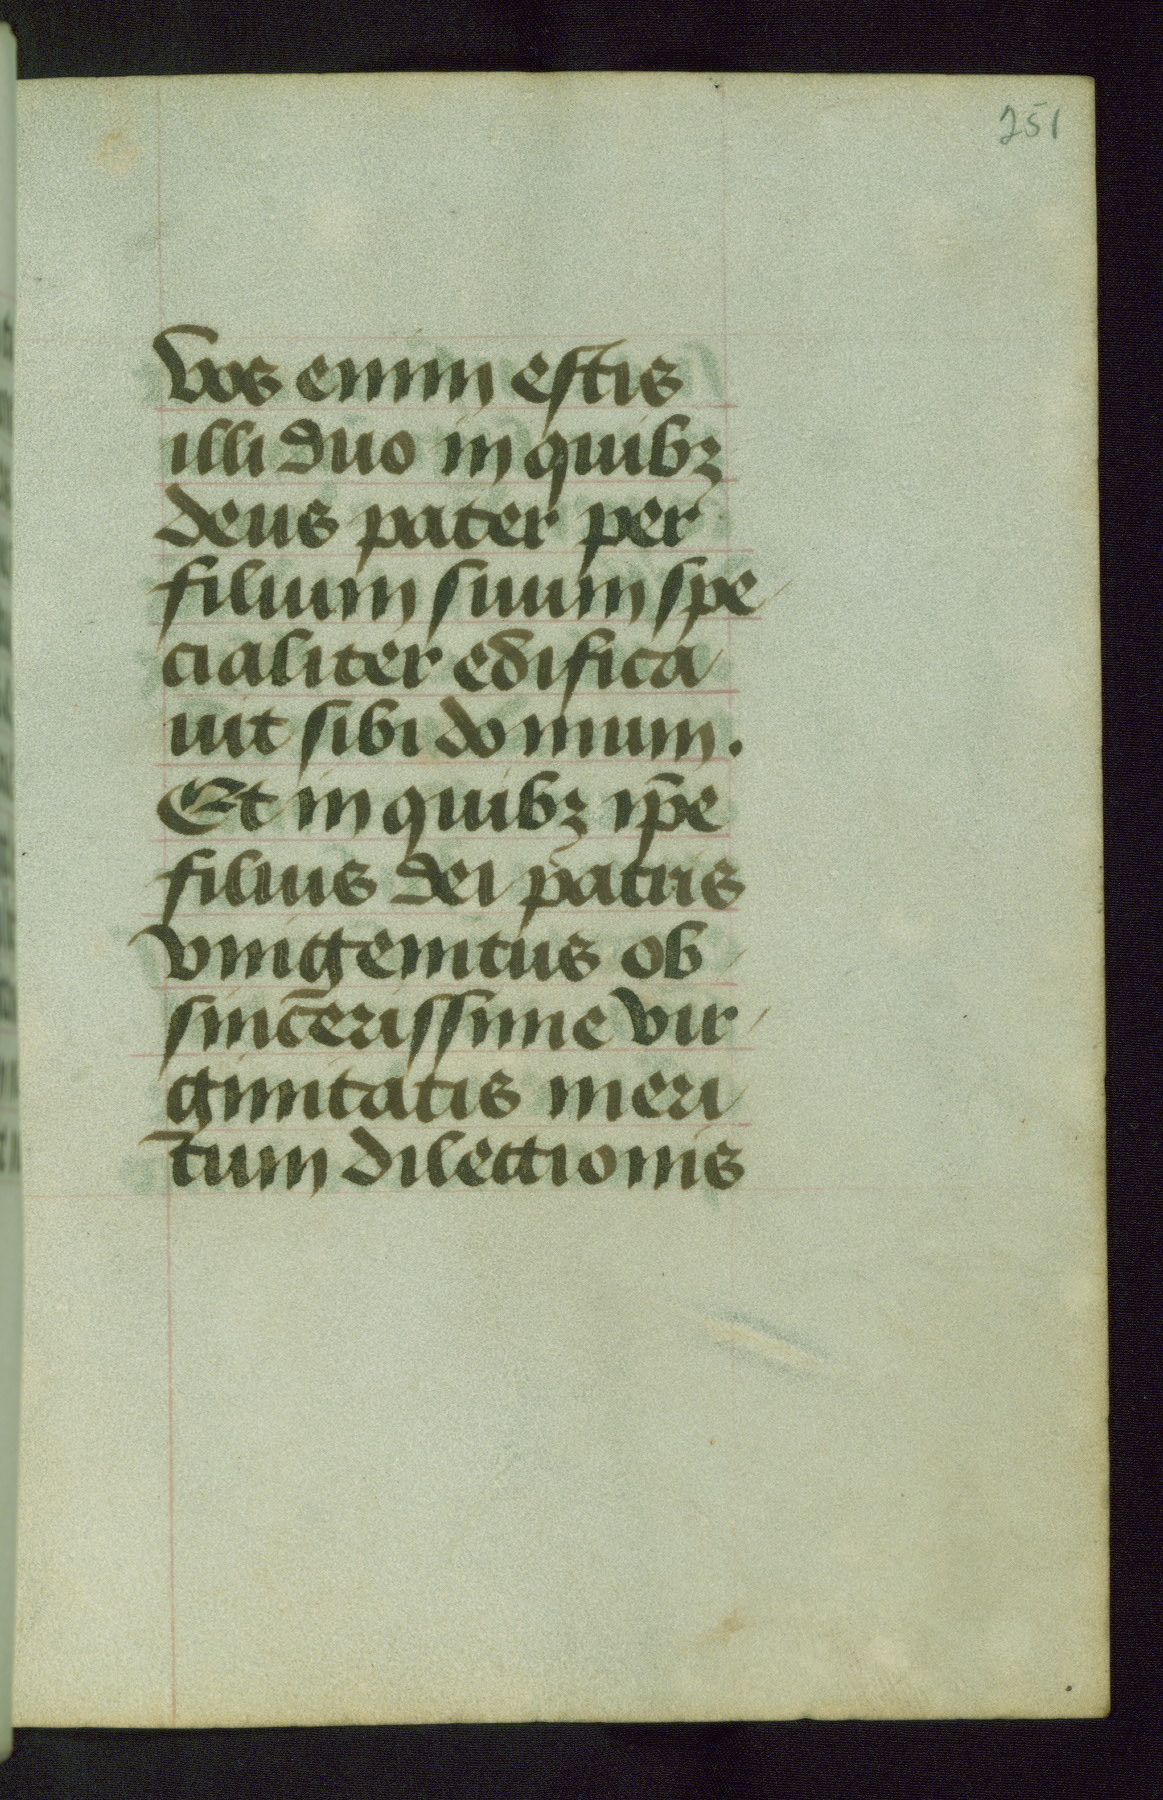 251
Vos enim estis
illi duo in quibꝫ
deus pater per
filium suum spe
cialiter edifica
uit sibi domum.
Et in quibꝫ ip̄e
filius dei patris
vnigenitus ob
sincerissime vir
ginitatis meri
tum dilectionis